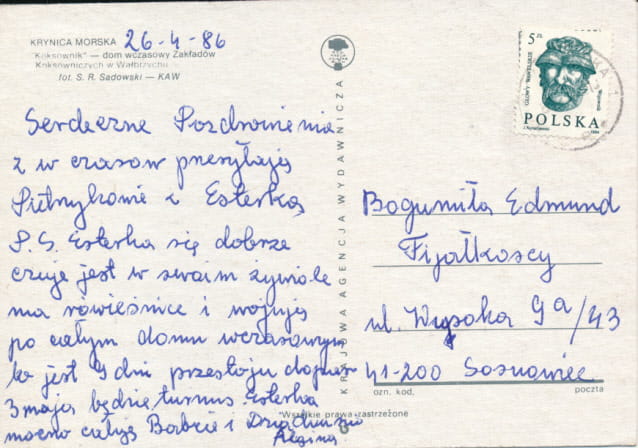 KRYNICA MORSKA 26-4-86
"Koksownik" — dom wczasowy Zakładów
Koksowniczych w Wałbrzychu
fot. S. R. Sadowski — KAW
Serdeczne Pozdrowienia
z wczasów przesyłają
Pietrykowie i Esterką
P.S. Esterka się dobrze
czuje jest w swoim żywiole
ma rówieśnice i wojują
po całym domu wczasowym
to jest 9 dni przestoju dopiero
3 maja będzie turnus Esterka
mocno całuje Babcie i
KRAJOWA AGENCJA WYDAWNICZA
5 ZŁ
GŁOWY WAWELSKIE
POLSKA
Bogumiła Edmund
Fijałkoscy
ul. Wysoka 9a/43
41-200 Sosnowiec
ozn. kod. poczta
*Wszelkie prawa zastrzeżone